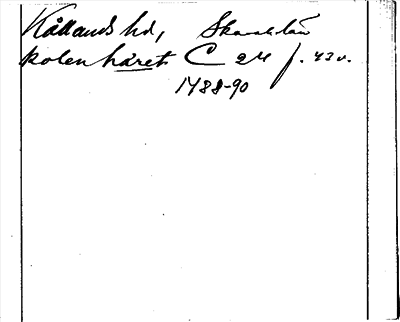 Kållands hd, Skarab. län
kolen häret C 24 f. 43 v.
1488-90